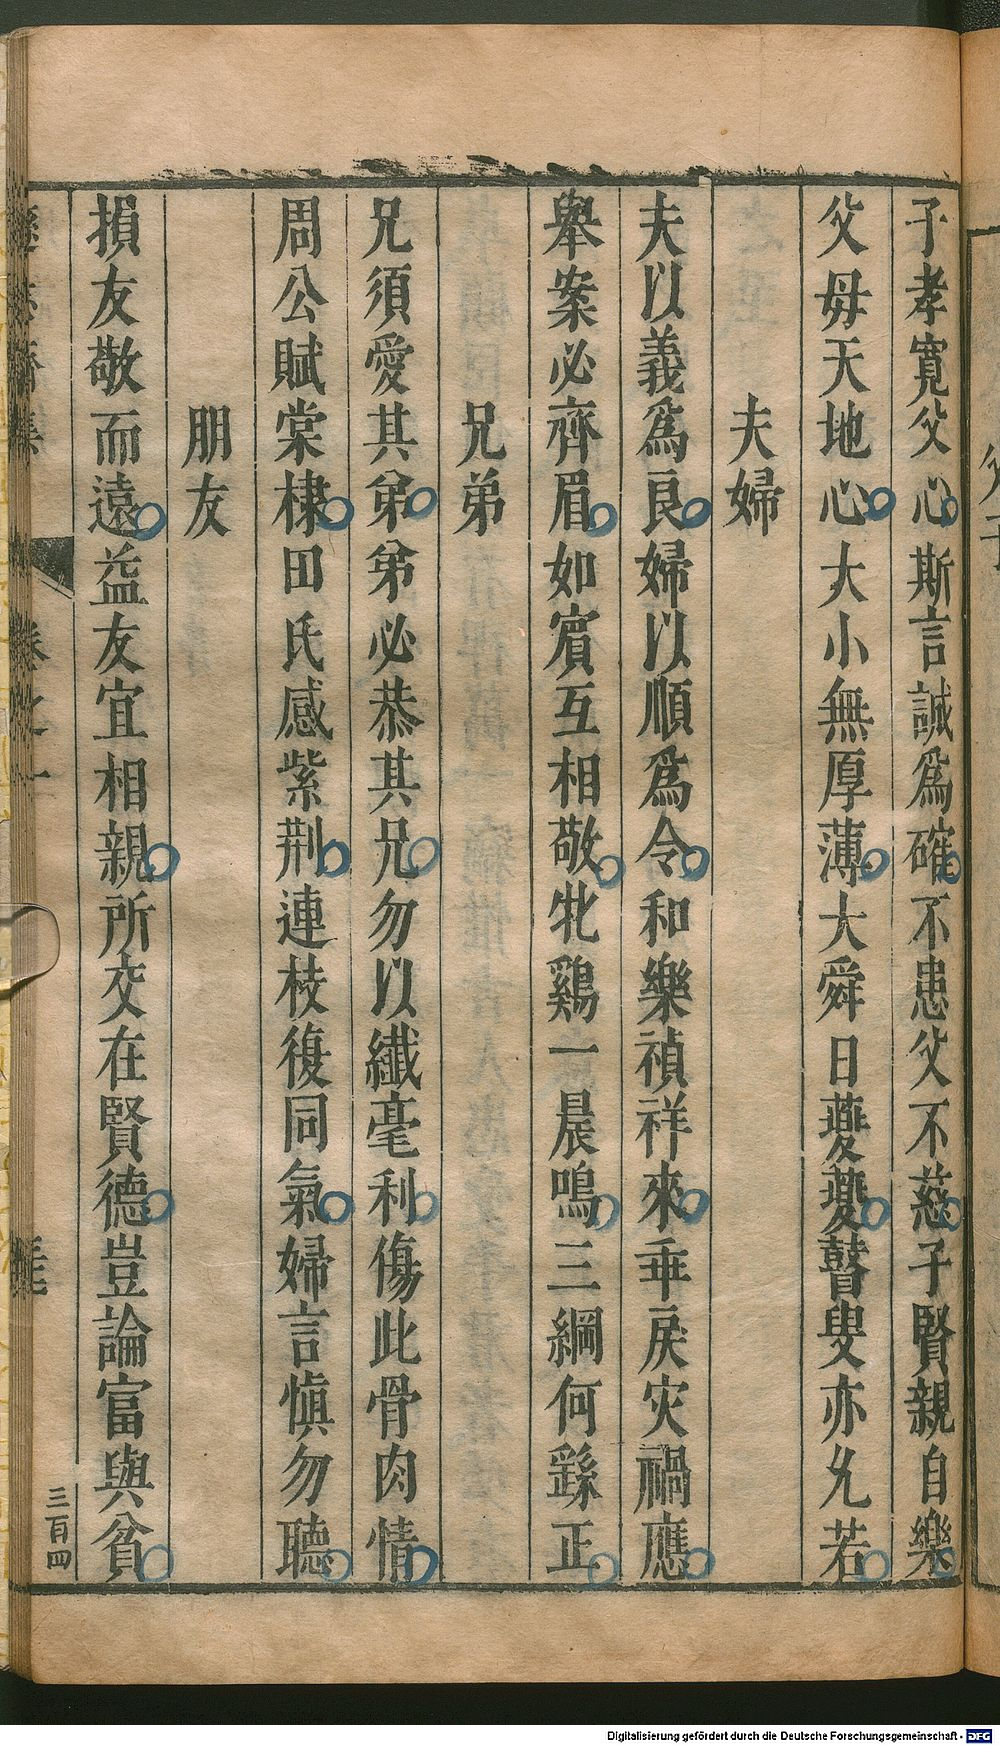 子孝寬父心斯言誠爲確不患父不慈子賢親自樂
父母天地心大小無厚薄大舜日夔夔瞽叟亦允若
夫婦
夫以義爲良婦以順爲令和樂禎祥來乖戾灾禍應
舉案必齊眉如賓互相敬牝鷄一晨鳴三綱何繇正
兄弟
兄須愛其弟弟必恭其兄勿以纖毫利傷此骨肉情
周公賦棠棣田氏感紫荆連枝復同氣婦言慎勿聽
朋友
損友敬而遠益友宜相親所交在賢德豈論富與貧
卷之一
三百四
Digitalisierung gefördert durch die Deutsche Forschungsgemeinschaft - DFG